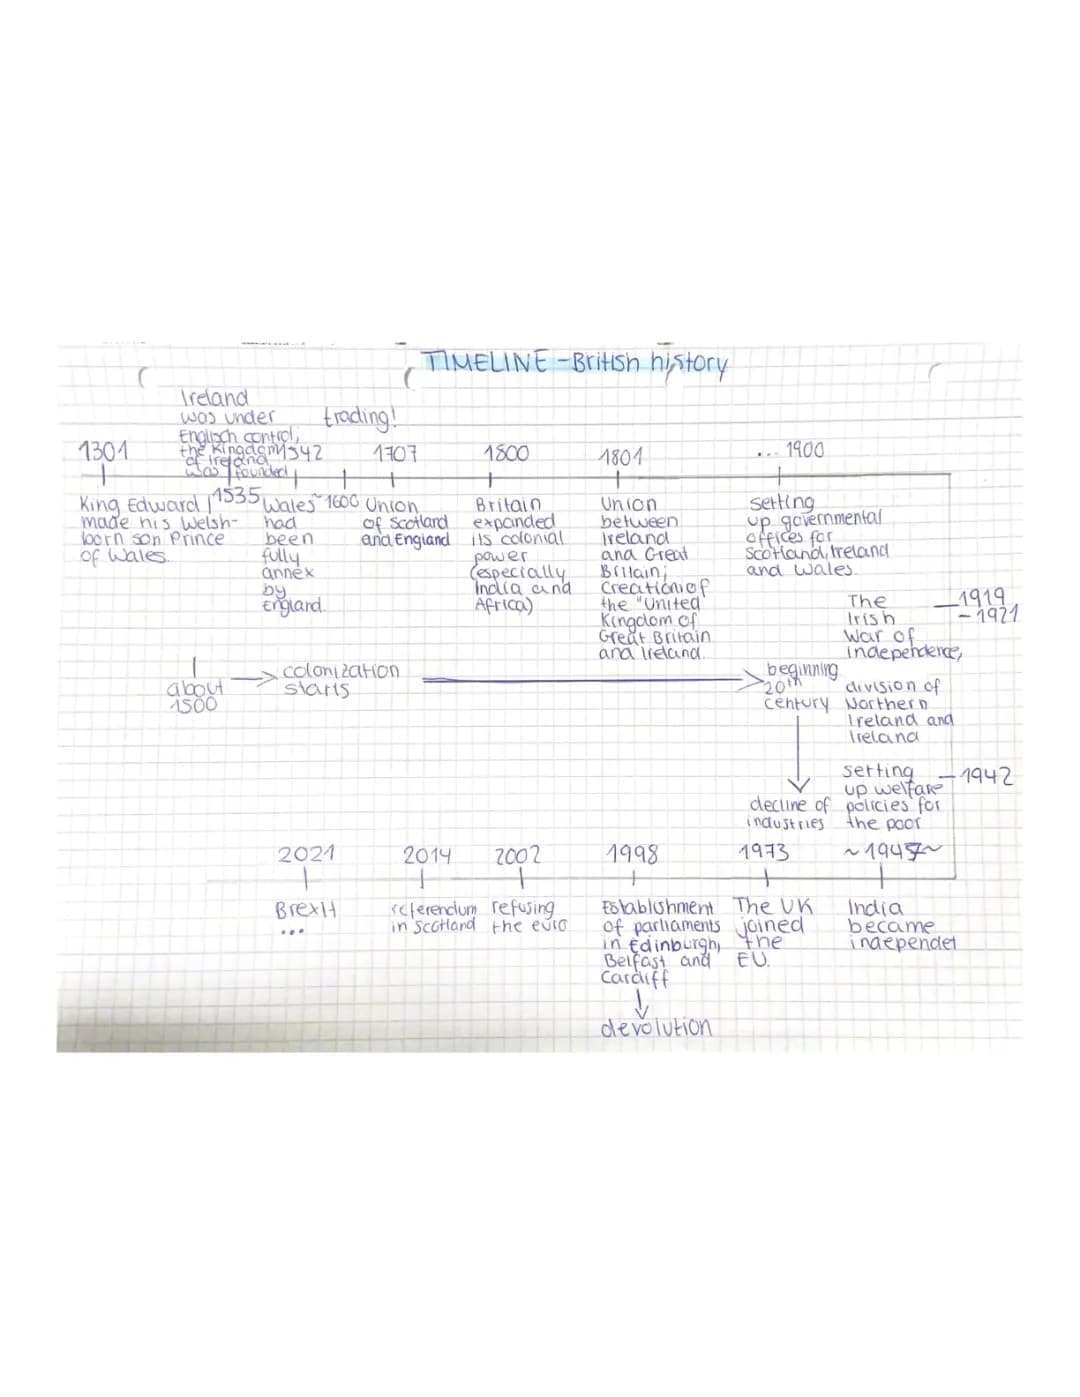 TIMELINE - British history
Ireland
was under
Englisch control,
the Kingdom
of Ireland
was founded
trading!
1301
1542
1707
1800
1801
... 1900
1535
~1600
King Edward
made his Welsh-
born son Prince
of Wales.
Wales
had
been
fully
annex
by
England.
Union
of Scotland
and England
Britain
expanded
its colonial
power
(especially
India and
Africa)
Union
between
Ireland
and Great
Britain;
Creation of
the "United
Kingdom of
Great Britain
and Ireland.
setting
up governmental
offices for
Scotland, Ireland
and Wales.
The
Irish
War of
Independence,
1919
- 1921
division of
Northern
Ireland and
Ireland
about
1500
colonization
starts
beginning
20th
century
decline of
industries
setting
up welfare
policies for
the poor
1942
2021
2014
2002
1998
1973
~1947~
Brexit
...
referendum
in Scotland
refusing
the euro
Establishment
of parliaments
in Edinburgh,
Belfast and
Cardiff
devolution
The UK
joined
the
EU.
India
became
independet